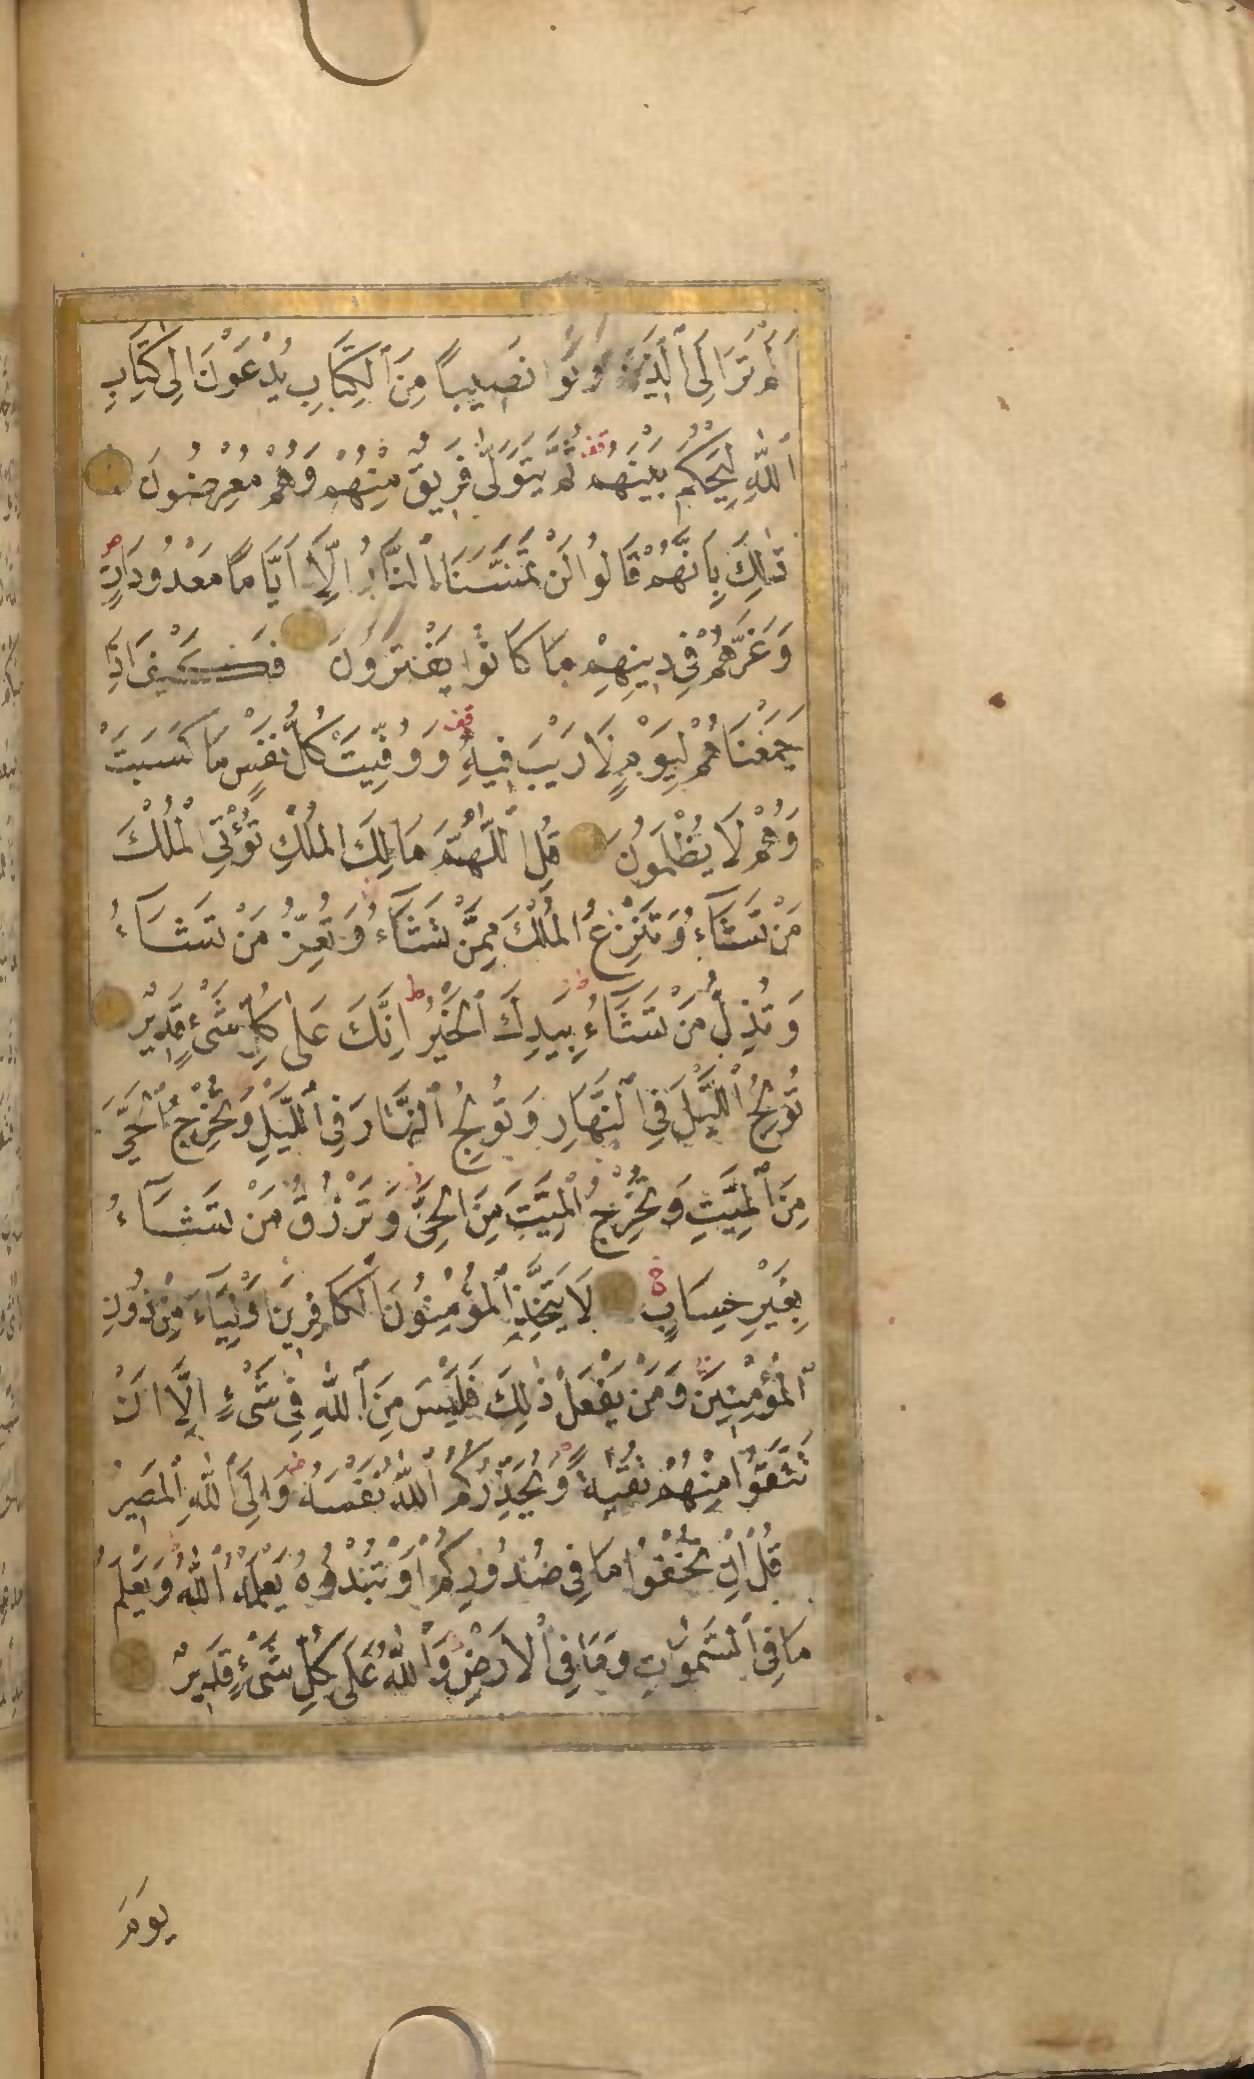 أَلَمْ تَرَ إِلَى ٱلَّذِينَ أُوتُوا نَصِيبًا مِنَ ٱلْكِتَابِ يُدْعَوْنَ إِلَى كِتَابِ
ٱللّٰهِ لِيَحْكُمَ بَيْنَهُمْ قف ثُمَّ يَتَوَلّٰى فَرِيقٌ مِنْهُمْ وَهُمْ مُعْرِضُونَ
ذٰلِكَ بِاَنَّهُمْ قَالُوا لَنْ تَمَسَّنَا ٱلنَّارُ اِلَّا اَيَّامًا مَعْدُودَاتٍ
وَغَرَّهُمْ فِي دِينِهِمْ مَا كَانُوا يَفْتَرُونَ فَكَيْفَ اِذَا
جَمَعْنَاهُمْ لِيَوْمٍ لَا رَيْبَ فِيهِ قف وَوُفِّيَتْ كُلُّ نَفْسٍ مَا كَسَبَتْ
وَهُمْ لَا يُظْلَمُونَ قُلِ ٱللّٰهُمَّ مَالِكَ الْمُلْكِ تُؤْتِي الْمُلْكَ
مَنْ تَشَآءُ وَتَنْزِعُ الْمُلْكَ مِمَّنْ تَشَآءُ وَتُعِزُّ مَنْ تَشَآءُ
وَتُذِلُّ مَنْ تَشَآءُ بِيَدِكَ ٱلْخَيْرُ ط اِنَّكَ عَلٰى كُلِّ شَيْءٍ قَدِيرٌ
تُولِجُ ٱللَّيْلَ فِي ٱلنَّهَارِ وَتُولِجُ ٱلنَّهَارَ فِي ٱللَّيْلِ وَتُخْرِجُ ٱلْحَيَّ
مِنَ ٱلْمَيِّتِ وَتُخْرِجُ ٱلْمَيِّتَ مِنَ الْحَيِّ وَتَرْزُقُ مَنْ تَشَآءُ
بِغَيْرِ حِسَابٍ لَا يَتَّخِذِ ٱلْمُؤْمِنُونَ ٱلْكَافِرِينَ اَوْلِيَآءَ مِنْ دُونِ
ٱلْمُؤْمِنِينَ وَمَنْ يَفْعَلْ ذٰلِكَ فَلَيْسَ مِنَ ٱللّٰهِ فِي شَيْءٍ اِلَّا اَنْ
تَتَّقُوا مِنْهُمْ تُقٰيةً وَيُحَذِّرُكُمُ ٱللّٰهُ نَفْسَهُ وَاِلَى ٱللّٰهِ ٱلْمَصِيرُ
قُلْ اِنْ تُخْفُوا مَا فِي صُدُورِكُمْ اَوْ تُبْدُوهُ يَعْلَمْهُ ٱللّٰهُ وَيَعْلَمُ
مَا فِي ٱلسَّمٰوَاتِ وَمَا فِي ٱلْاَرْضِ وَٱللّٰهُ عَلٰى كُلِّ شَيْءٍ قَدِيرٌ
يَوْمَ